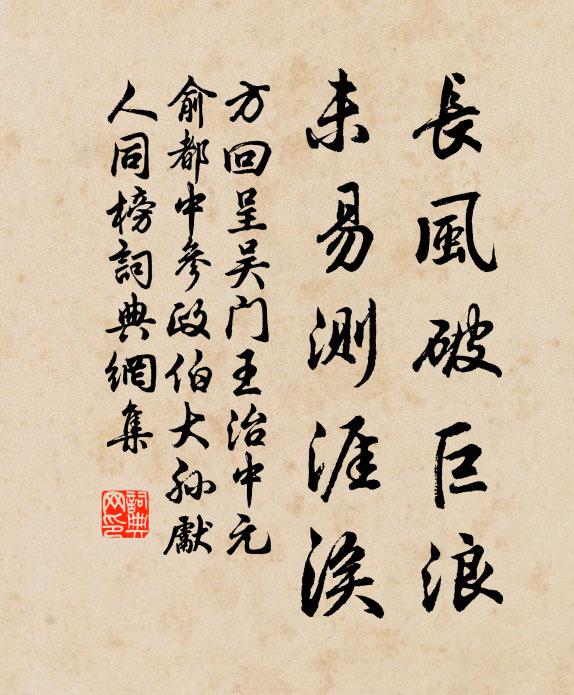 長風破巨浪
未易測涯涘
方回呈吴门王治中元
俞都中參政伯大孙獻
人同榜詞典網集
詞典网印